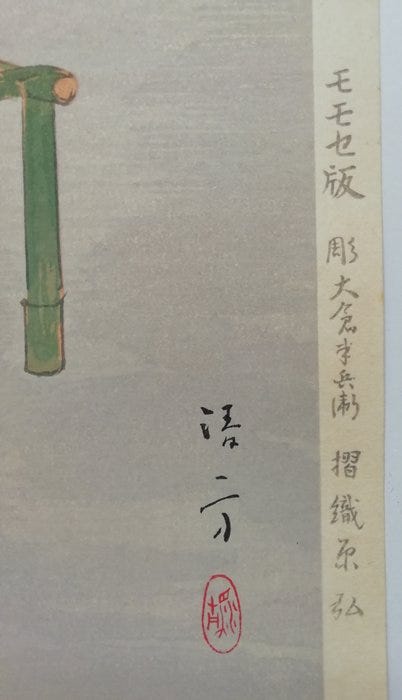 モモセ版　彫　大倉半兵衛　摺　織原弘
清方